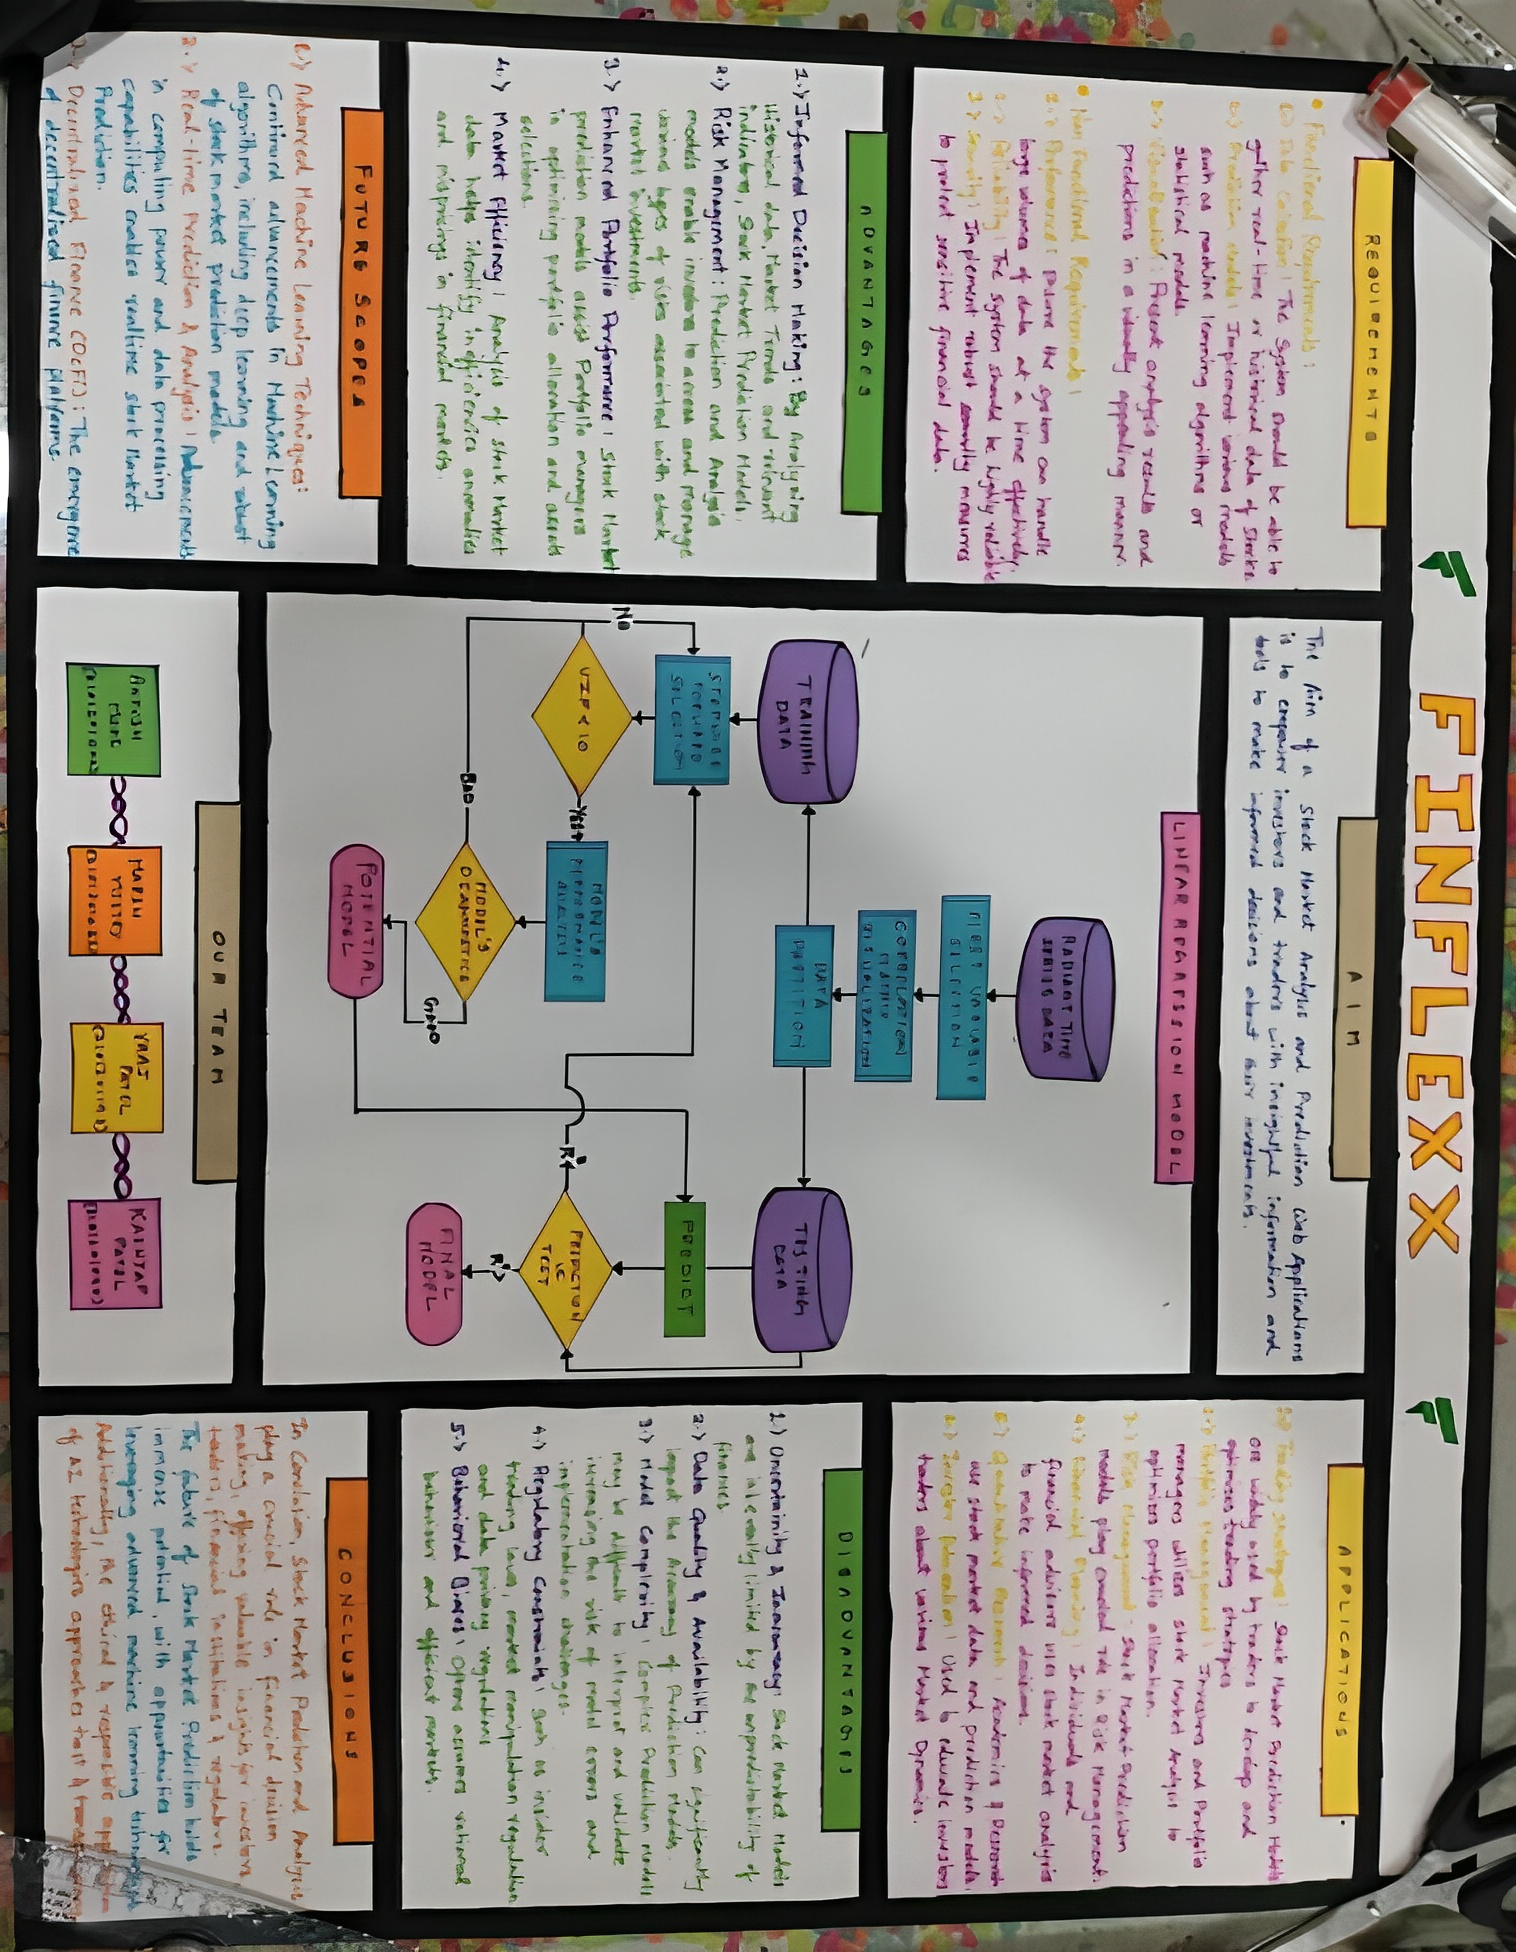 FINFLEXX
REQUIREMENTS
• Functional Requirements:
1.) Data Collection: The System should be able to
gather real-time or historical data of Stocks.
2.) Prediction models: Implement various models
such as machine learning algorithms or
statistical models.
3.) Visualization: Present analysis results and
predictions in a visually appealing manner.
• Non Functional Requirements:
1.) Performance: the system can handle
large volumes of data at a time effectively.
2.) Reliability: The system should be highly reliable
3.) Security: Implement robust security measures
to protect sensitive financial data.
ADVANTAGES
1.) Informed Decision Making: By Analysing
Historical data, Market Trends and relevant
indicators, Stock Market Prediction Models.
2.) Risk Management: Prediction and Analysis
models enable investors to assess and manage
various types of risks associated with stock
market investments.
3.) Enhanced Portfolio Performance: Stock Market
prediction models assist Portfolio managers
in optimizing portfolio allocation and assets
selections.
4.) Market Efficiency: Analysis of stock Market
data helps identify inefficiencies anomalies
and mispricings in financial markets.
FUTURE SCOPES
1.) Advanced Machine Learning Techniques:
Continued advancements in Machine Learning
algorithms, including deep learning and
of stock market prediction models
2.) Real-time Prediction & Analysis: Advancements
in computing power and data processing
capabilities enables realtime stock Market
Prediction.
Decentralized Finance (DeFi): The emergence
of decentralised finance platforms.
AIM
The Aim of a Stock Market Analysis and Prediction Web Applications
is to empower investors and traders with insightful information and
tools to make informed decisions about their investments.
LINEAR REGRESSION MODEL
RADIANT TIME
SERIES DATA
SELECTION
CORRELATION
MATRIX
VISUALIZATION
DATA
PARTITION
TRAINING
DATA
TESTING
DATA
STEPWISE
FORWARD
SELECTION
No
VIF < 10
Yes
MODEL'S
PERFORMANCE
MODEL'S
Bad
Good
POTENTIAL
MODEL
PREDICT
PREDICTION
IC
TEST
FINAL
MODEL
OUR TEAM
YRAJ
PATEL
PATEL
APPLICATIONS
1.) Trading strategies: Stock Market Prediction Models
are widely used by traders to develop and
optimises trading strategies
2.) Portfolio Management: Investors and Portfolio
managers utilizes stock Market Analysis to
optimizes portfolio allocation.
3.) Risk Management: Stock Market Prediction
models play crucial role in Risk Management.
4.) Financial Planning: Individuals and
financial advisors uses stock market analysis
to make informed decisions.
5.) Quantitative Research: Academics & Research
use stock market data and prediction models.
6.) Investor Education: Used to educate investors
traders about various Market Dynamics.
DISADVANTAGES
1.) Uncertainity & Inaccuracy: Stock Market Models
are inherently limited by the unpredictability of
finances.
2.) Data Quality & Availability: Can significantly
impact the Accuracy of Prediction Models.
3.) Model Complexity: Complex Prediction models
may be difficult to interpret and validate
increasing the risk of model errors and
implementation challenges.
4.) Regulatory Constraints: such as insider
trading laws, market manipulation regulation
and data privacy regulations
5.) Behavioral Biases: Options assumes rational
behaviour and efficient markets.
CONCLUSIONS
In Conclusion, Stock Market Prediction and Analysis
play a crucial role in financial decision
making, offering valuable insights for investors
traders, financial institutions & regulators.
The future of Stock Market Prediction holds
immense potential, with opportunities for
leveraging advanced machine learning techniques
Additionally, the ethical & responsible
of AI technologies approaches that